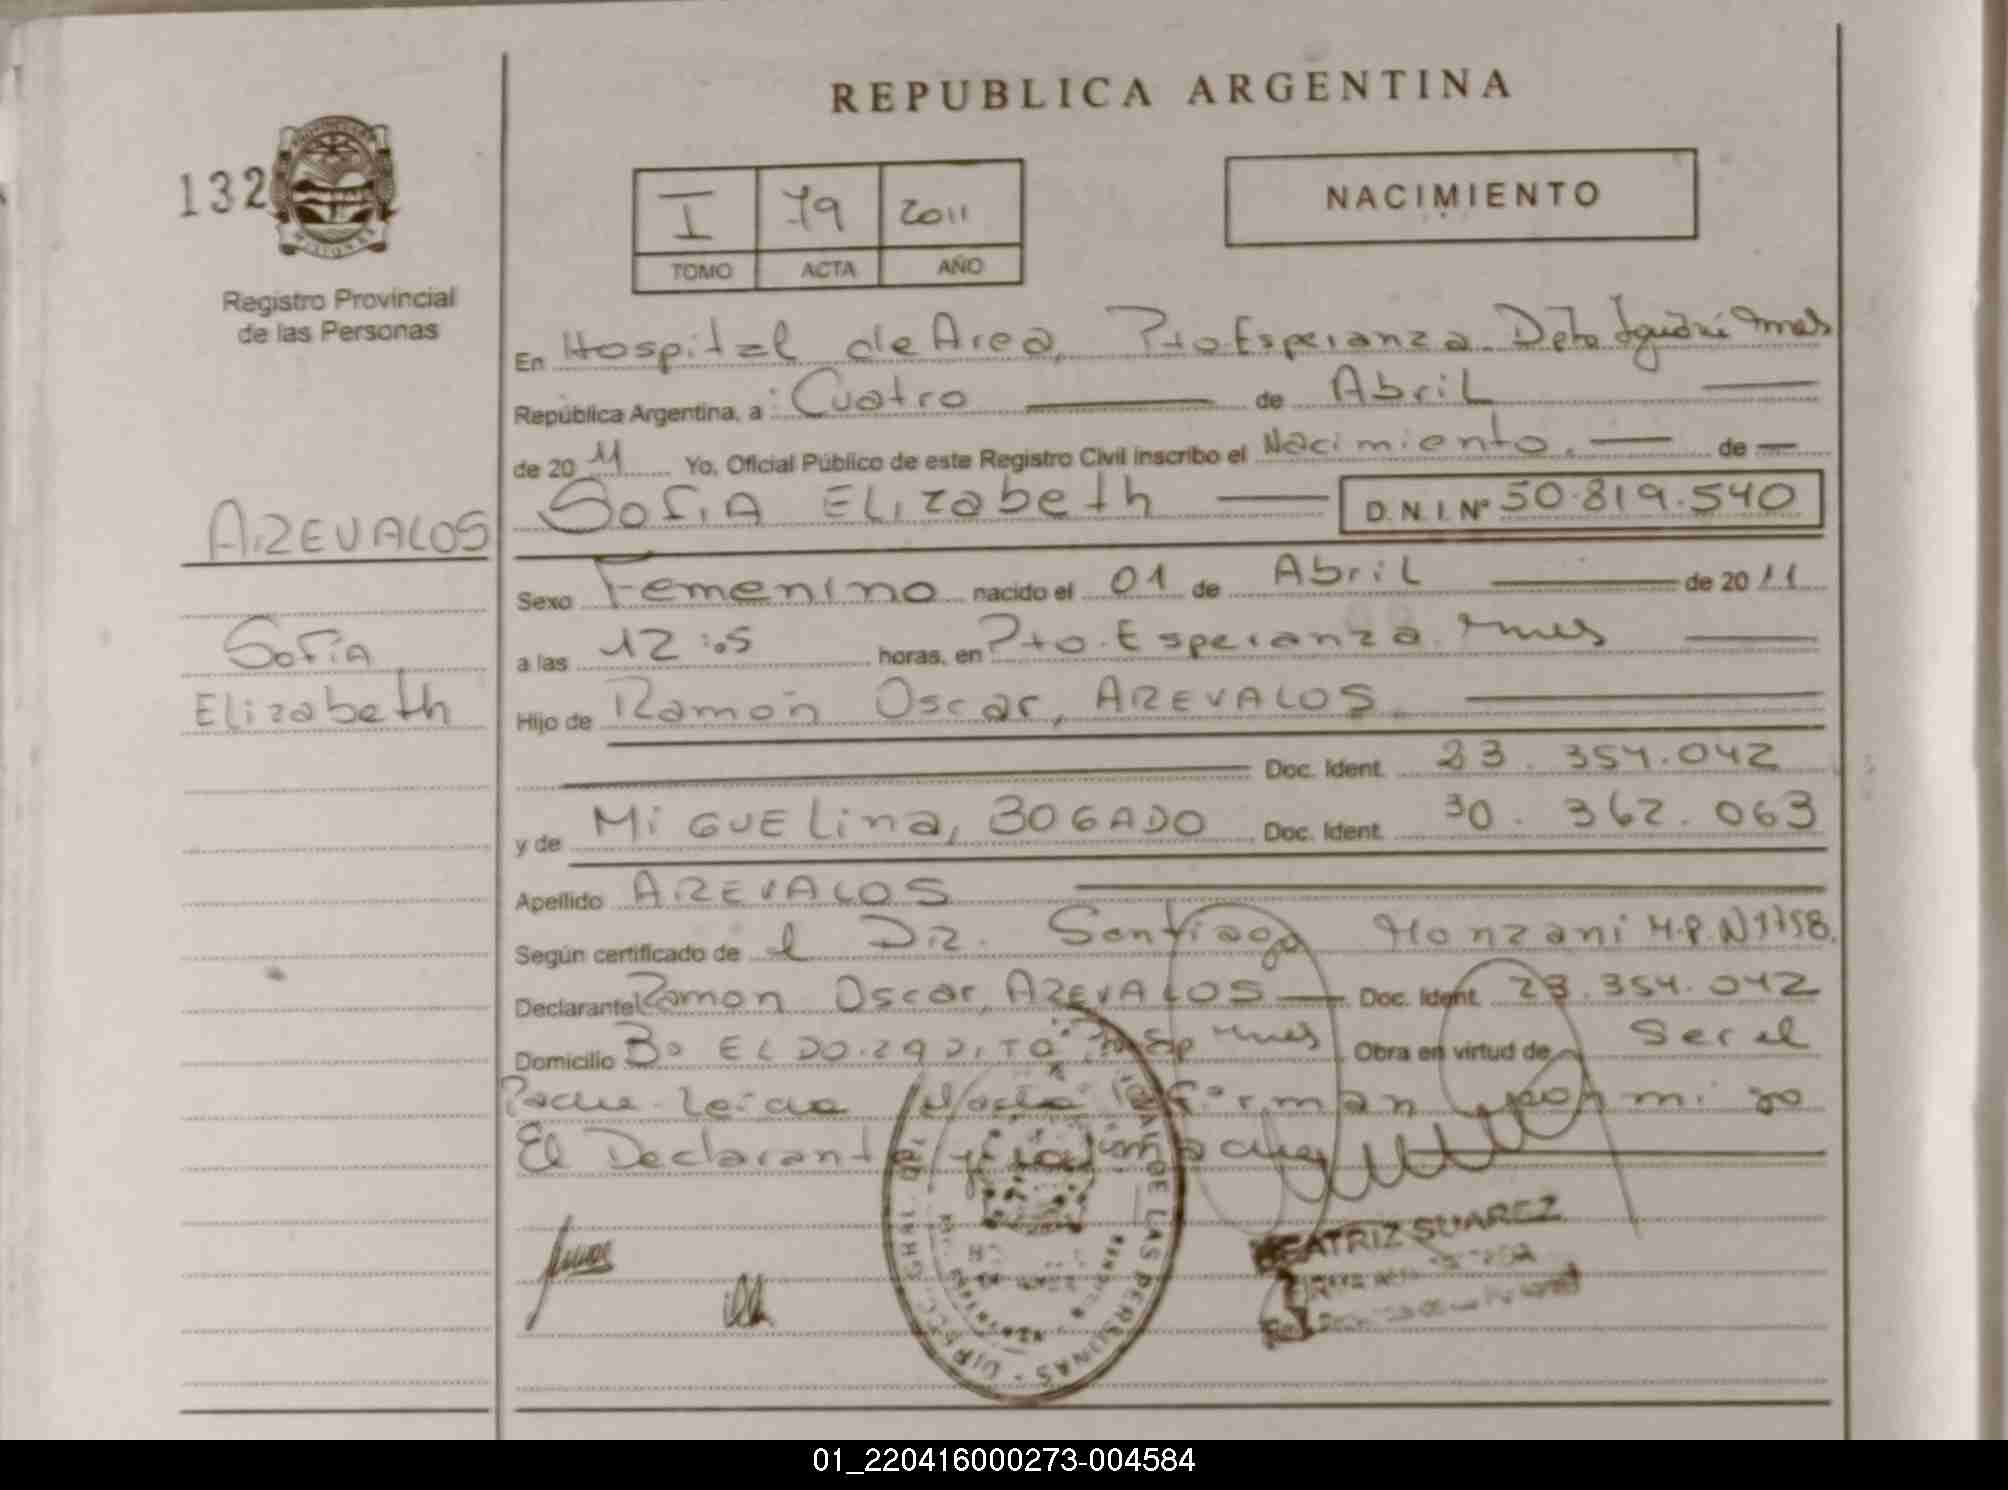 REPUBLICA ARGENTINA
132
Registro Provincial
de las Personas
I 79 2011
TOMO ACTA AÑO
NACIMIENTO
En Hospital de Area, Pto. Esperanza. Dpto Iguazú Mnes
República Argentina, a Cuatro de Abril
de 2011 Yo, Oficial Público de este Registro Civil inscribo el Nacimiento, de
AREVALOS
SOFIA ELIZabeth D.N.I.Nº 50.819.540
Sexo Femenino nacido el 01 de Abril de 2011
Sofia
a las 12:05 horas, en Pto. Esperanza. Mnes
Elizabeth
Hijo de Ramón Oscar, AREVALOS
Doc. Ident. 23.354.042
y de MiGUELina, BOGADO Doc. Ident. 30.362.063
Apellido AREVALOS
Según certificado de el DR. Santiago Monzani M.P.N 1758.
Declarante Ramon Oscar, AREVALOS Doc. Ident. 23.354.042
Domicilio Bo ELDORADITO Mnes Obra en virtud de Ser el
Padre. Leida Firman por mi yo
El Declarante y la madre
DE LAS PERSONAS
BEATRIZ SUAREZ
01_220416000273-004584